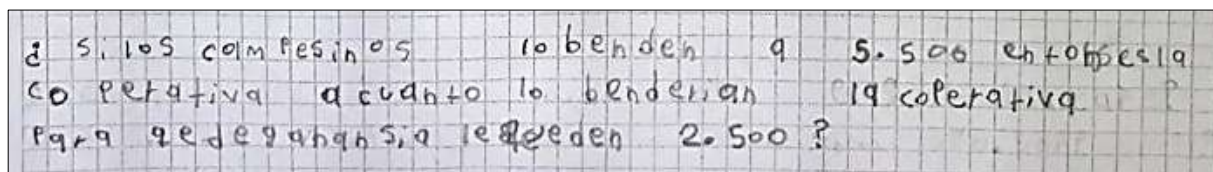 ¿ si los campesinos lo benden a 5.500 entonses la
coperativa a cuanto lo benderian la coperativa
para qe de ganansia le qeeden 2.500 ?